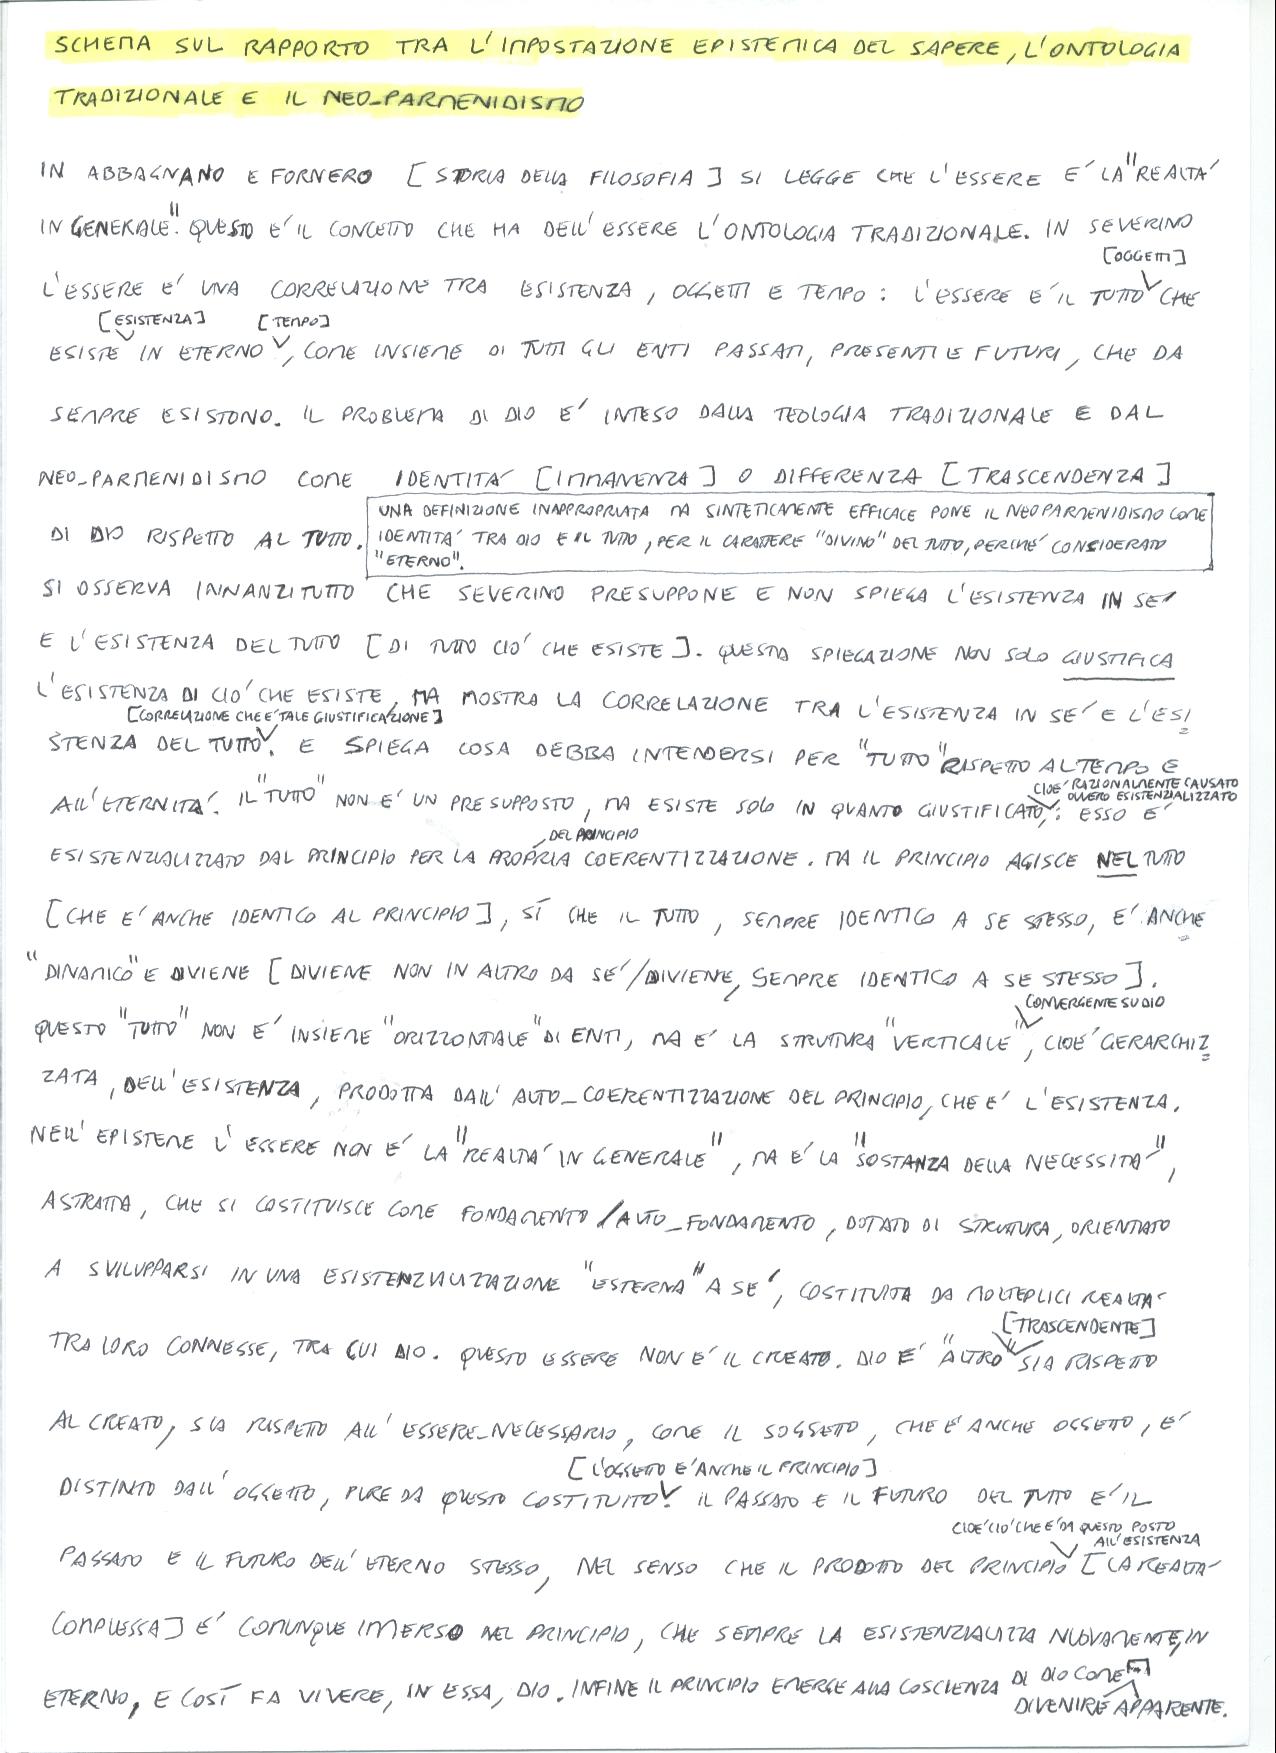 SCHEMA SUL RAPPORTO TRA L'IMPOSTAZIONE EPISTEMICA DEL SAPERE, L'ONTOLOGIA
TRADIZIONALE E IL NEO-PARMENIDISMO
IN ABBAGNANO E FORNERO [STORIA DELLA FILOSOFIA] SI LEGGE CHE L'ESSERE E' LA "REALTA'
IN GENERALE". QUESTO E' IL CONCETTO CHE HA DELL'ESSERE L'ONTOLOGIA TRADIZIONALE. IN SEVERINO
[OGGETTI]
L'ESSERE E' UNA CORRELAZIONE TRA ESISTENZA, OGGETTI E TEMPO: L'ESSERE E' IL TUTTO CHE
[ESISTENZA] [TEMPO]
ESISTE IN ETERNO, COME INSIEME DI TUTTI GLI ENTI PASSATI, PRESENTI E FUTURI, CHE DA
SEMPRE ESISTONO. IL PROBLEMA DI DIO E' INTESO DALLA TEOLOGIA TRADIZIONALE E DAL
NEO-PARMENIDISMO COME IDENTITA' [IMMANENZA] O DIFFERENZA [TRASCENDENZA]
DI DIO RISPETTO AL TUTTO.
UNA DEFINIZIONE INAPPROPRIATA MA SINTETICAMENTE EFFICACE PONE IL NEOPARMENIDISMO COME
IDENTITA' TRA DIO E IL TUTTO, PER IL CARATTERE "DIVINO" DEL TUTTO, PERCHE' CONSIDERATO
"ETERNO".
SI OSSERVA INNANZITUTTO CHE SEVERINO PRESUPPONE E NON SPIEGA L'ESISTENZA IN SE'
E L'ESISTENZA DEL TUTTO [DI TUTTO CIO' CHE ESISTE]. QUESTA SPIEGAZIONE NON SOLO GIUSTIFICA
L'ESISTENZA DI CIO' CHE ESISTE, MA MOSTRA LA CORRELAZIONE TRA L'ESISTENZA IN SE' E L'ESI
[CORRELAZIONE CHE E' TALE GIUSTIFICAZIONE]
STENZA DEL TUTTO. E SPIEGA COSA DEBBA INTENDERSI PER "TUTTO" RISPETTO AL TEMPO E
CIOE' RAZIONALMENTE CAUSATO
OVVERO ESISTENZIALIZZATO
ALL'ETERNITA'. IL "TUTTO" NON E' UN PRESUPPOSTO, MA ESISTE SOLO IN QUANTO GIUSTIFICATO,: ESSO E'
DEL PRINCIPIO
ESISTENZIALIZZATO DAL PRINCIPIO PER LA PROPRIA COERENTIZZAZIONE. MA IL PRINCIPIO AGISCE NEL TUTTO
[CHE E' ANCHE IDENTICO AL PRINCIPIO], SÍ CHE IL TUTTO, SEMPRE IDENTICO A SE STESSO, E' ANCHE
"DINAMICO" E DIVIENE [DIVIENE NON IN ALTRO DA SE'/DIVIENE, SEMPRE IDENTICO A SE STESSO].
CONVERGENTE SU DIO
QUESTO "TUTTO" NON E' INSIEME "ORIZZONTALE" DI ENTI, MA E' LA STRUTTURA "VERTICALE", CIOE' GERARCHIZ
ZATA, DELL'ESISTENZA, PRODOTTA DALL'AUTO-COERENTIZZAZIONE DEL PRINCIPIO, CHE E' L'ESISTENZA.
NELL'EPISTEME L'ESSERE NON E' LA "REALTA' IN GENERALE", MA E' LA "SOSTANZA DELLA NECESSITA'",
ASTRATTA, CHE SI COSTITUISCE COME FONDAMENTO/AUTO-FONDAMENTO, DOTATO DI STRUTTURA, ORIENTATO
A SVILUPPARSI IN UNA ESISTENZIALIZZAZIONE "ESTERNA" A SE', COSTITUITA DA MOLTEPLICI REALTA'
[TRASCENDENTE]
TRA LORO CONNESSE, TRA CUI DIO. QUESTO ESSERE NON E' IL CREATO. DIO E' "ALTRO" SIA RISPETTO
AL CREATO, SIA RISPETTO ALL'ESSERE-NECESSARIO, COME IL SOGGETTO, CHE E' ANCHE OGGETTO, E'
[L'OGGETTO E' ANCHE IL PRINCIPIO]
DISTINTO DALL'OGGETTO, PURE DA QUESTO COSTITUITO. IL PASSATO E IL FUTURO DEL TUTTO E' IL
CIOE' CIO' CHE E' DA QUESTO POSTO
ALL'ESISTENZA
PASSATO E IL FUTURO DELL'ETERNO STESSO, NEL SENSO CHE IL PRODOTTO DEL PRINCIPIO [LA REALTA'
COMPLESSA] E' COMUNQUE IMMERSO NEL PRINCIPIO, CHE SEMPRE LA ESISTENZIALIZZA NUOVAMENTE, IN
ETERNO, E COSÍ FA VIVERE, IN ESSA, DIO. INFINE IL PRINCIPIO EMERGE ALLA COSCIENZA DI DIO COME
DIVENIRE APPARENTE.